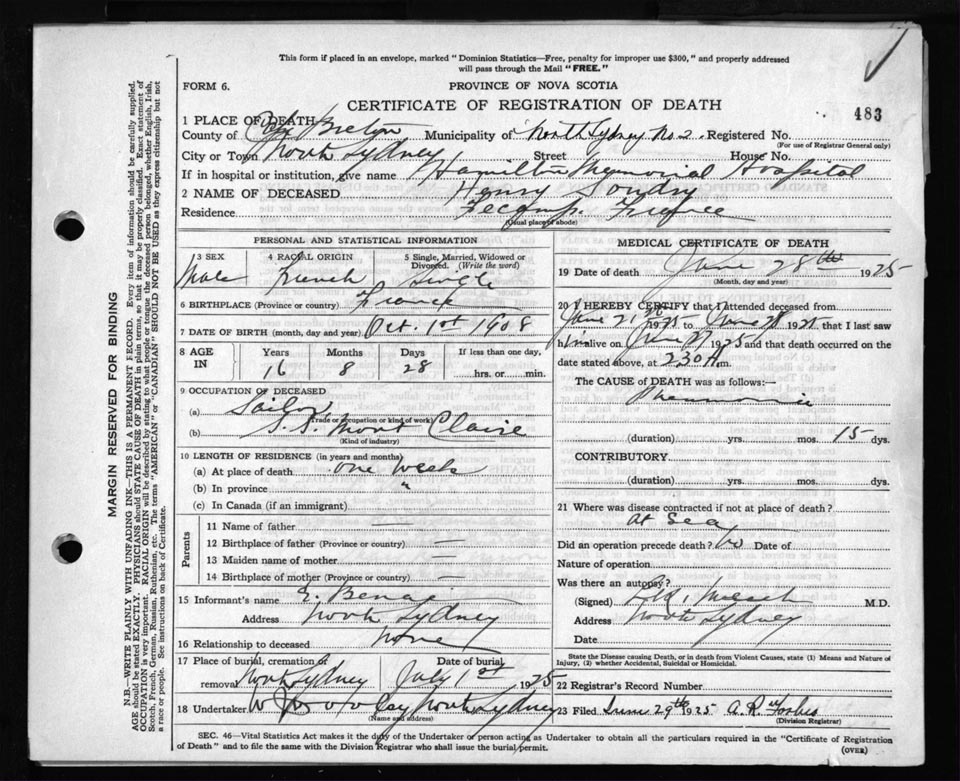 This form if placed in an envelope, marked "Dominion Statistics—Free, penalty for improper use $300," and properly addressed
will pass through the Mail "FREE."
FORM 6.
PROVINCE OF NOVA SCOTIA
CERTIFICATE OF REGISTRATION OF DEATH
483
1 PLACE OF DEATH—
County of Cape Breton Municipality of North Sydney No 2. Registered No.
(For use of Registrar General only)
City or Town North Sydney Street House No.
If in hospital or institution, give name Hamilton Memorial Hospital
2 NAME OF DECEASED Henry Soudry
Residence Fecamp. France
(Usual place of abode)
PERSONAL AND STATISTICAL INFORMATION
3 SEX 4 RACIAL ORIGIN 5 Single, Married, Widowed or Divorced. (Write the word)
Male French Single
6 BIRTHPLACE (Province or country) France
7 DATE OF BIRTH (month, day and year) Oct. 1st 1908
8 AGE IN Years Months Days If less than one day,
16 8 28 hrs. or min.
9 OCCUPATION OF DECEASED
(a) Sailor
(Trade or occupation or kind of work)
(b) S.S. Mont Claire
(Kind of industry)
10 LENGTH OF RESIDENCE (in years and months)
(a) At place of death one week
(b) In province "
(c) In Canada (if an immigrant)
Parents
11 Name of father —
12 Birthplace of father (Province or country) —
13 Maiden name of mother —
14 Birthplace of mother (Province or country) —
15 Informant's name E.
Address North Sydney
16 Relationship to deceased None
17 Place of burial, cremation or Date of burial
removal North Sydney July 1st 1925
18 Undertaker North Sydney
(Name and address)
MEDICAL CERTIFICATE OF DEATH
19 Date of death June 28th 1925
(Month, day and year)
20 I HEREBY CERTIFY that I attended deceased from
June 21 1925 to June 28 1925 that I last saw
him alive on June 27 1925 and that death occurred on the
date stated above, at 230 A m.
The CAUSE of DEATH was as follows:—
Pneumonia
(duration) yrs. mos. 15 dys.
CONTRIBUTORY
(duration) yrs. mos. dys.
21 Where was disease contracted if not at place of death?
At Sea
Did an operation precede death? No Date of
Nature of operation
Was there an autopsy?
(Signed) M.D.
Address North Sydney
Date
State the Disease causing Death, or in death from Violent Causes, state (1) Means and Nature of
Injury, (2) whether Accidental, Suicidal or Homicidal.
22 Registrar's Record Number
23 Filed June 29th 1925 A.R. Forbes
(Division Registrar)
SEC. 46—Vital Statistics Act makes it the duty of the Undertaker or person acting as Undertaker to obtain all the particulars required in the "Certificate of Registration
of Death" and to file the same with the Division Registrar who shall issue the burial permit.
(OVER)
MARGIN RESERVED FOR BINDING
N.B.—WRITE PLAINLY WITH UNFADING INK—THIS IS A PERMANENT RECORD. Every item of information should be carefully supplied.
AGE should be stated EXACTLY. PHYSICIANS should STATE CAUSE OF DEATH in plain terms, so that it may be properly classified. Exact statement of
OCCUPATION is very important. RACIAL ORIGIN will be described by stating to what people or tongue the deceased person belonged, whether English, Irish,
Scotch, French, German, Russian, Ruthenian, etc. The terms "AMERICAN" or "CANADIAN" SHOULD NOT BE USED as they express citizenship but not
a race or people. See instructions on back of Certificate.